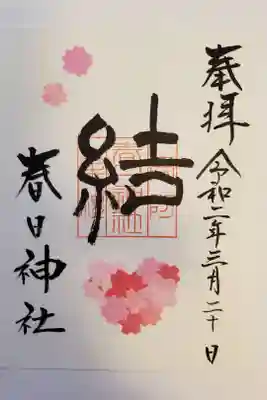 奉拝
令和二年三月二十日
結
春日神社